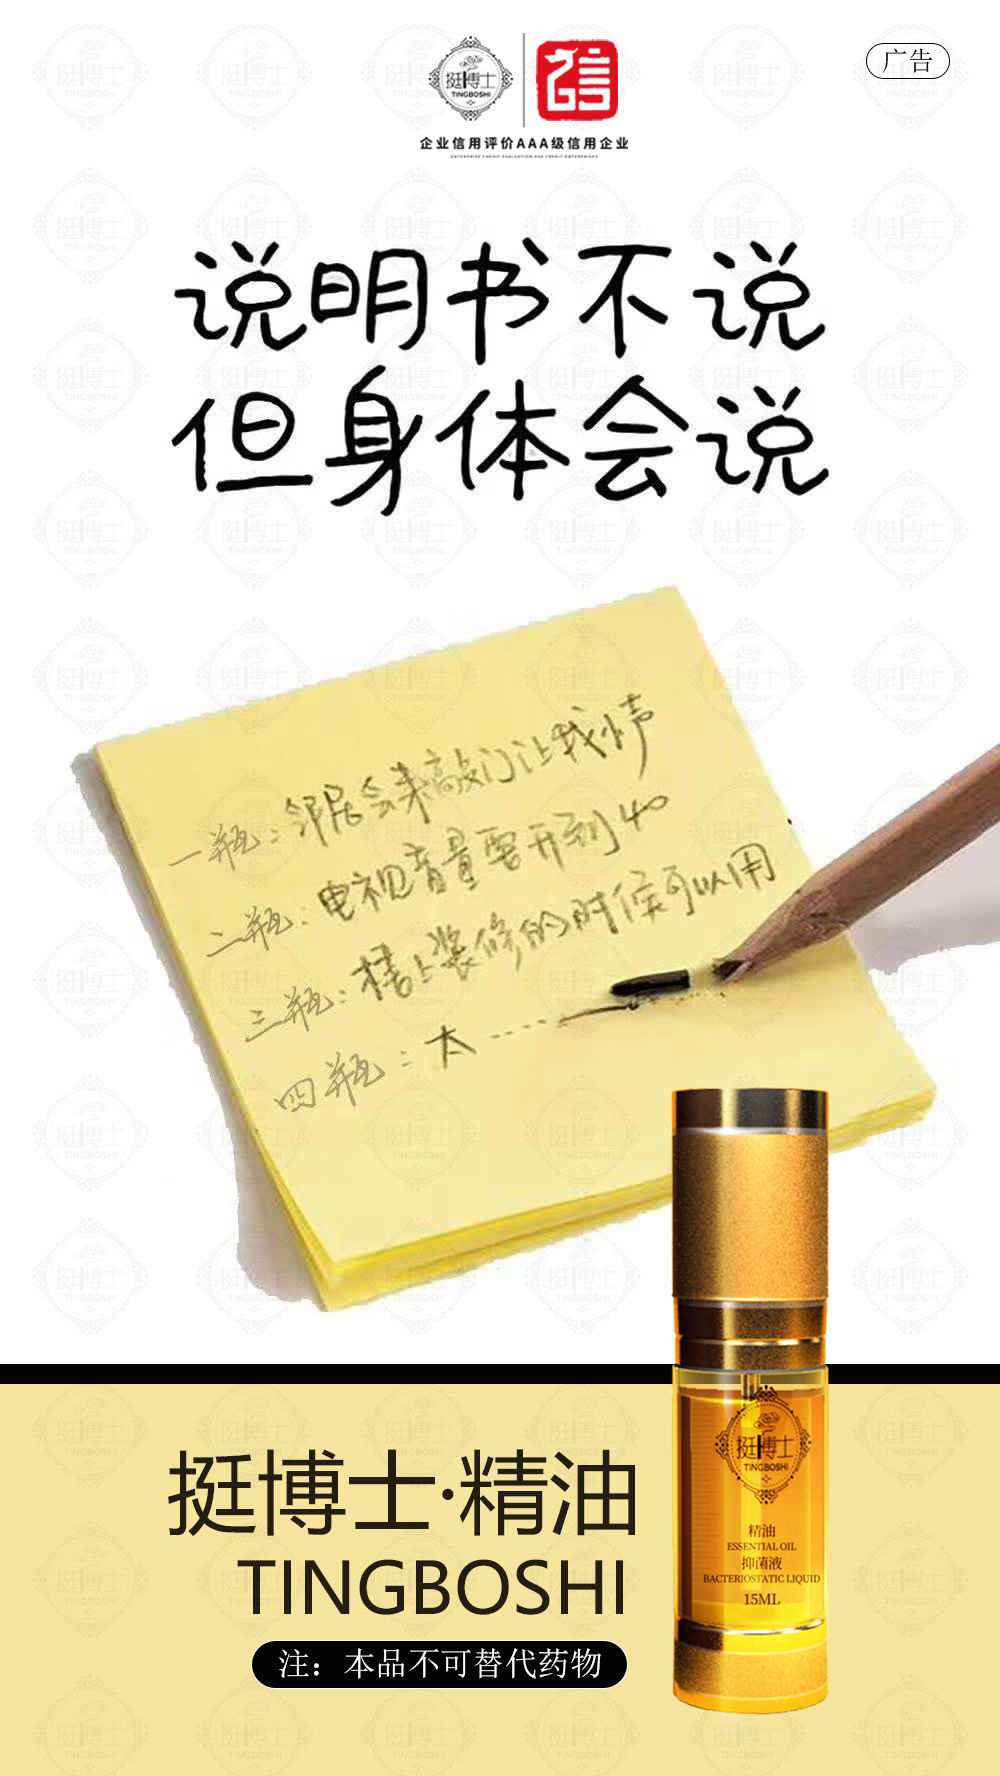 广告
挺博士
TINGBOSHI
企业信用评价AAA级信用企业
ENTERPRISE CREDIT EVALUATION AAA CREDIT ENTERPRISES
说明书不说
但身体会说
一瓶：邻居会来敲门让我小声
二瓶：电视音量要开到40
三瓶：楼上装修的时候可以用
四瓶：太……
挺博士·精油
TINGBOSHI
注：本品不可替代药物
挺博士
TINGBOSHI
精油
ESSENTIAL OIL
抑菌液
BACTERIOSTATIC LIQUID
15ML